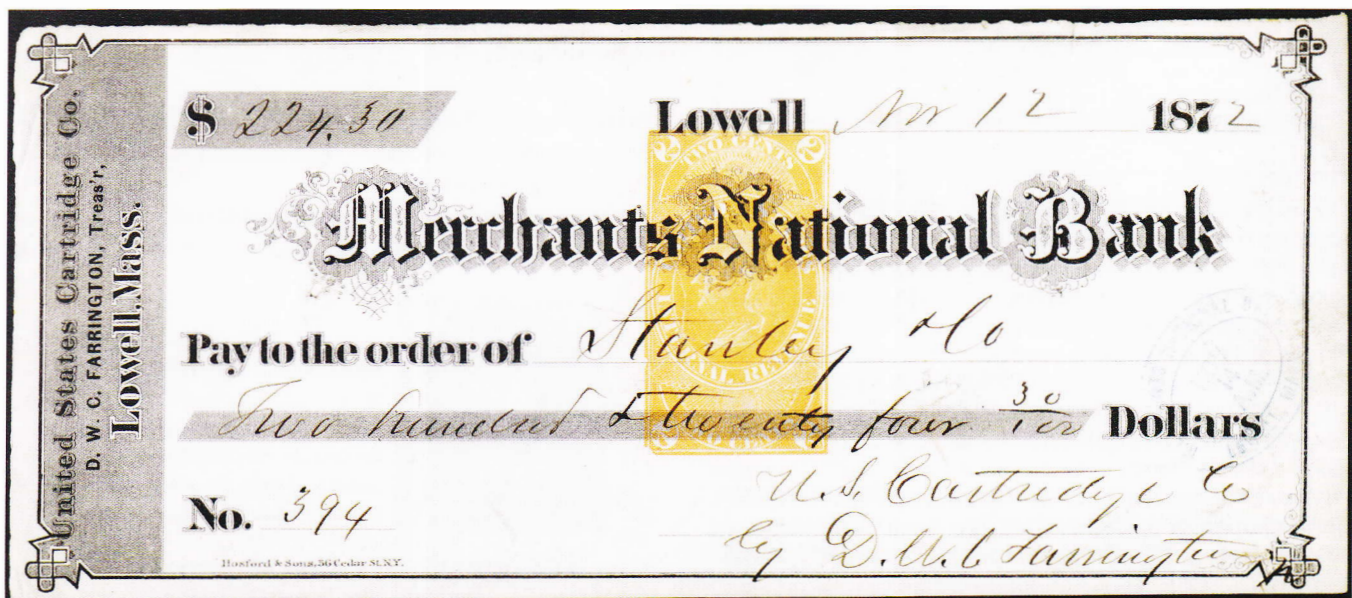 United States Cartridge Co.
D. W. C. FARRINGTON, Treas'r,
Lowell, Mass.
$ 224.30
Lowell Nov 12 1872
TWO CENTS
2 2
Merchants National Bank
INTERNAL REVENUE
Pay to the order of Stanley & Co
Two hundred & twenty four 30/100 Dollars
TWO CENTS
No. 394
U.S. Cartridge Co
by D.W.C Farrington
Hosford & Sons, 56 Cedar St. N.Y.